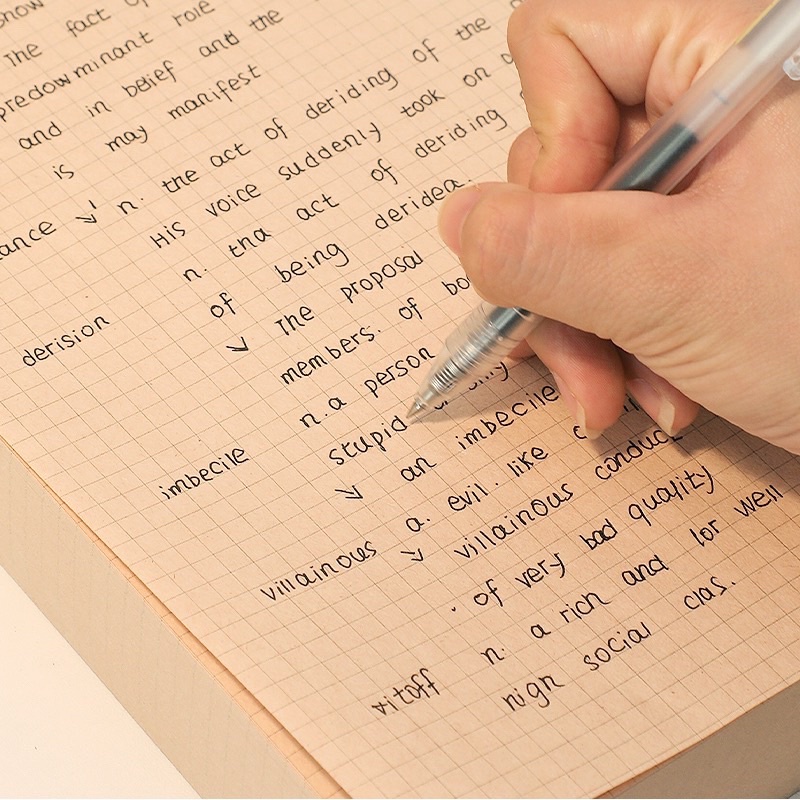 show
The fact of
predowminant role
and in belief and the
is may manifest
ance n. the act of deriding of the
His voice suddenly took on
n. tha act of deriding
of being deridea.
derision The proposal
members. of bo
n. a person
imbecile stupid or silly
an imbecile
a. evil. like
villainous villainous conduct
. of very bad quality
vitoff n. a rich and lor well
nign social clas.